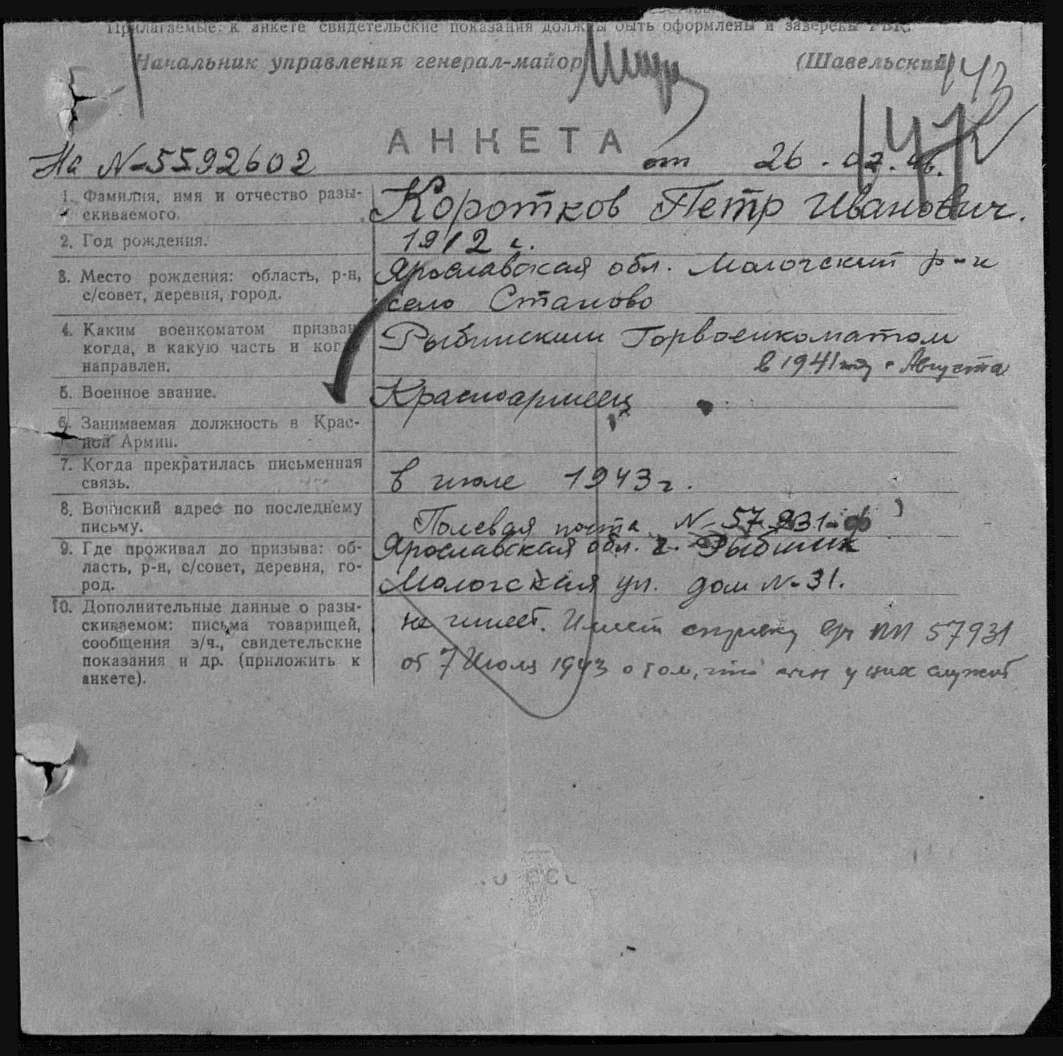 Прилагаемые к анкете свидетельские показания должны быть оформлены и заверены РВК.
Начальник управления генерал-майор (Шавельский)
143
147
АНКЕТА
На №5592602 от 26.02.46.
1. Фамилия, имя и отчество разы-
скиваемого.
Коротков Петр Иванович.
2. Год рождения.
1912 г.
3. Место рождения: область, р-н,
с/совет, деревня, город.
Ярославская обл. Мологский р-н
село Станово
4. Каким военкоматом призван,
когда, в какую часть и когда
направлен.
Рыбинским Горвоенкоматом
в 1941 году Августа
5. Военное звание.
Красноармеец
6. Занимаемая должность в Крас-
ной Армии.
7. Когда прекратилась письменная
связь.
в июле 1943 г.
8. Воинский адрес по последнему
письму.
Полевая почта № 57931-ф
9. Где проживал до призыва: об-
ласть, р-н, с/совет, деревня, го-
род.
Ярославская обл. г. Рыбинск
Мологская ул. дом №31.
10. Дополнительные данные о разы-
скиваемом: письма товарищей,
сообщения в/ч., свидетельские
показания и др. (приложить к
анкете).
не имеет. Имеет справку ПП 57931
от 7 Июля 1943 о том, что он у них служит